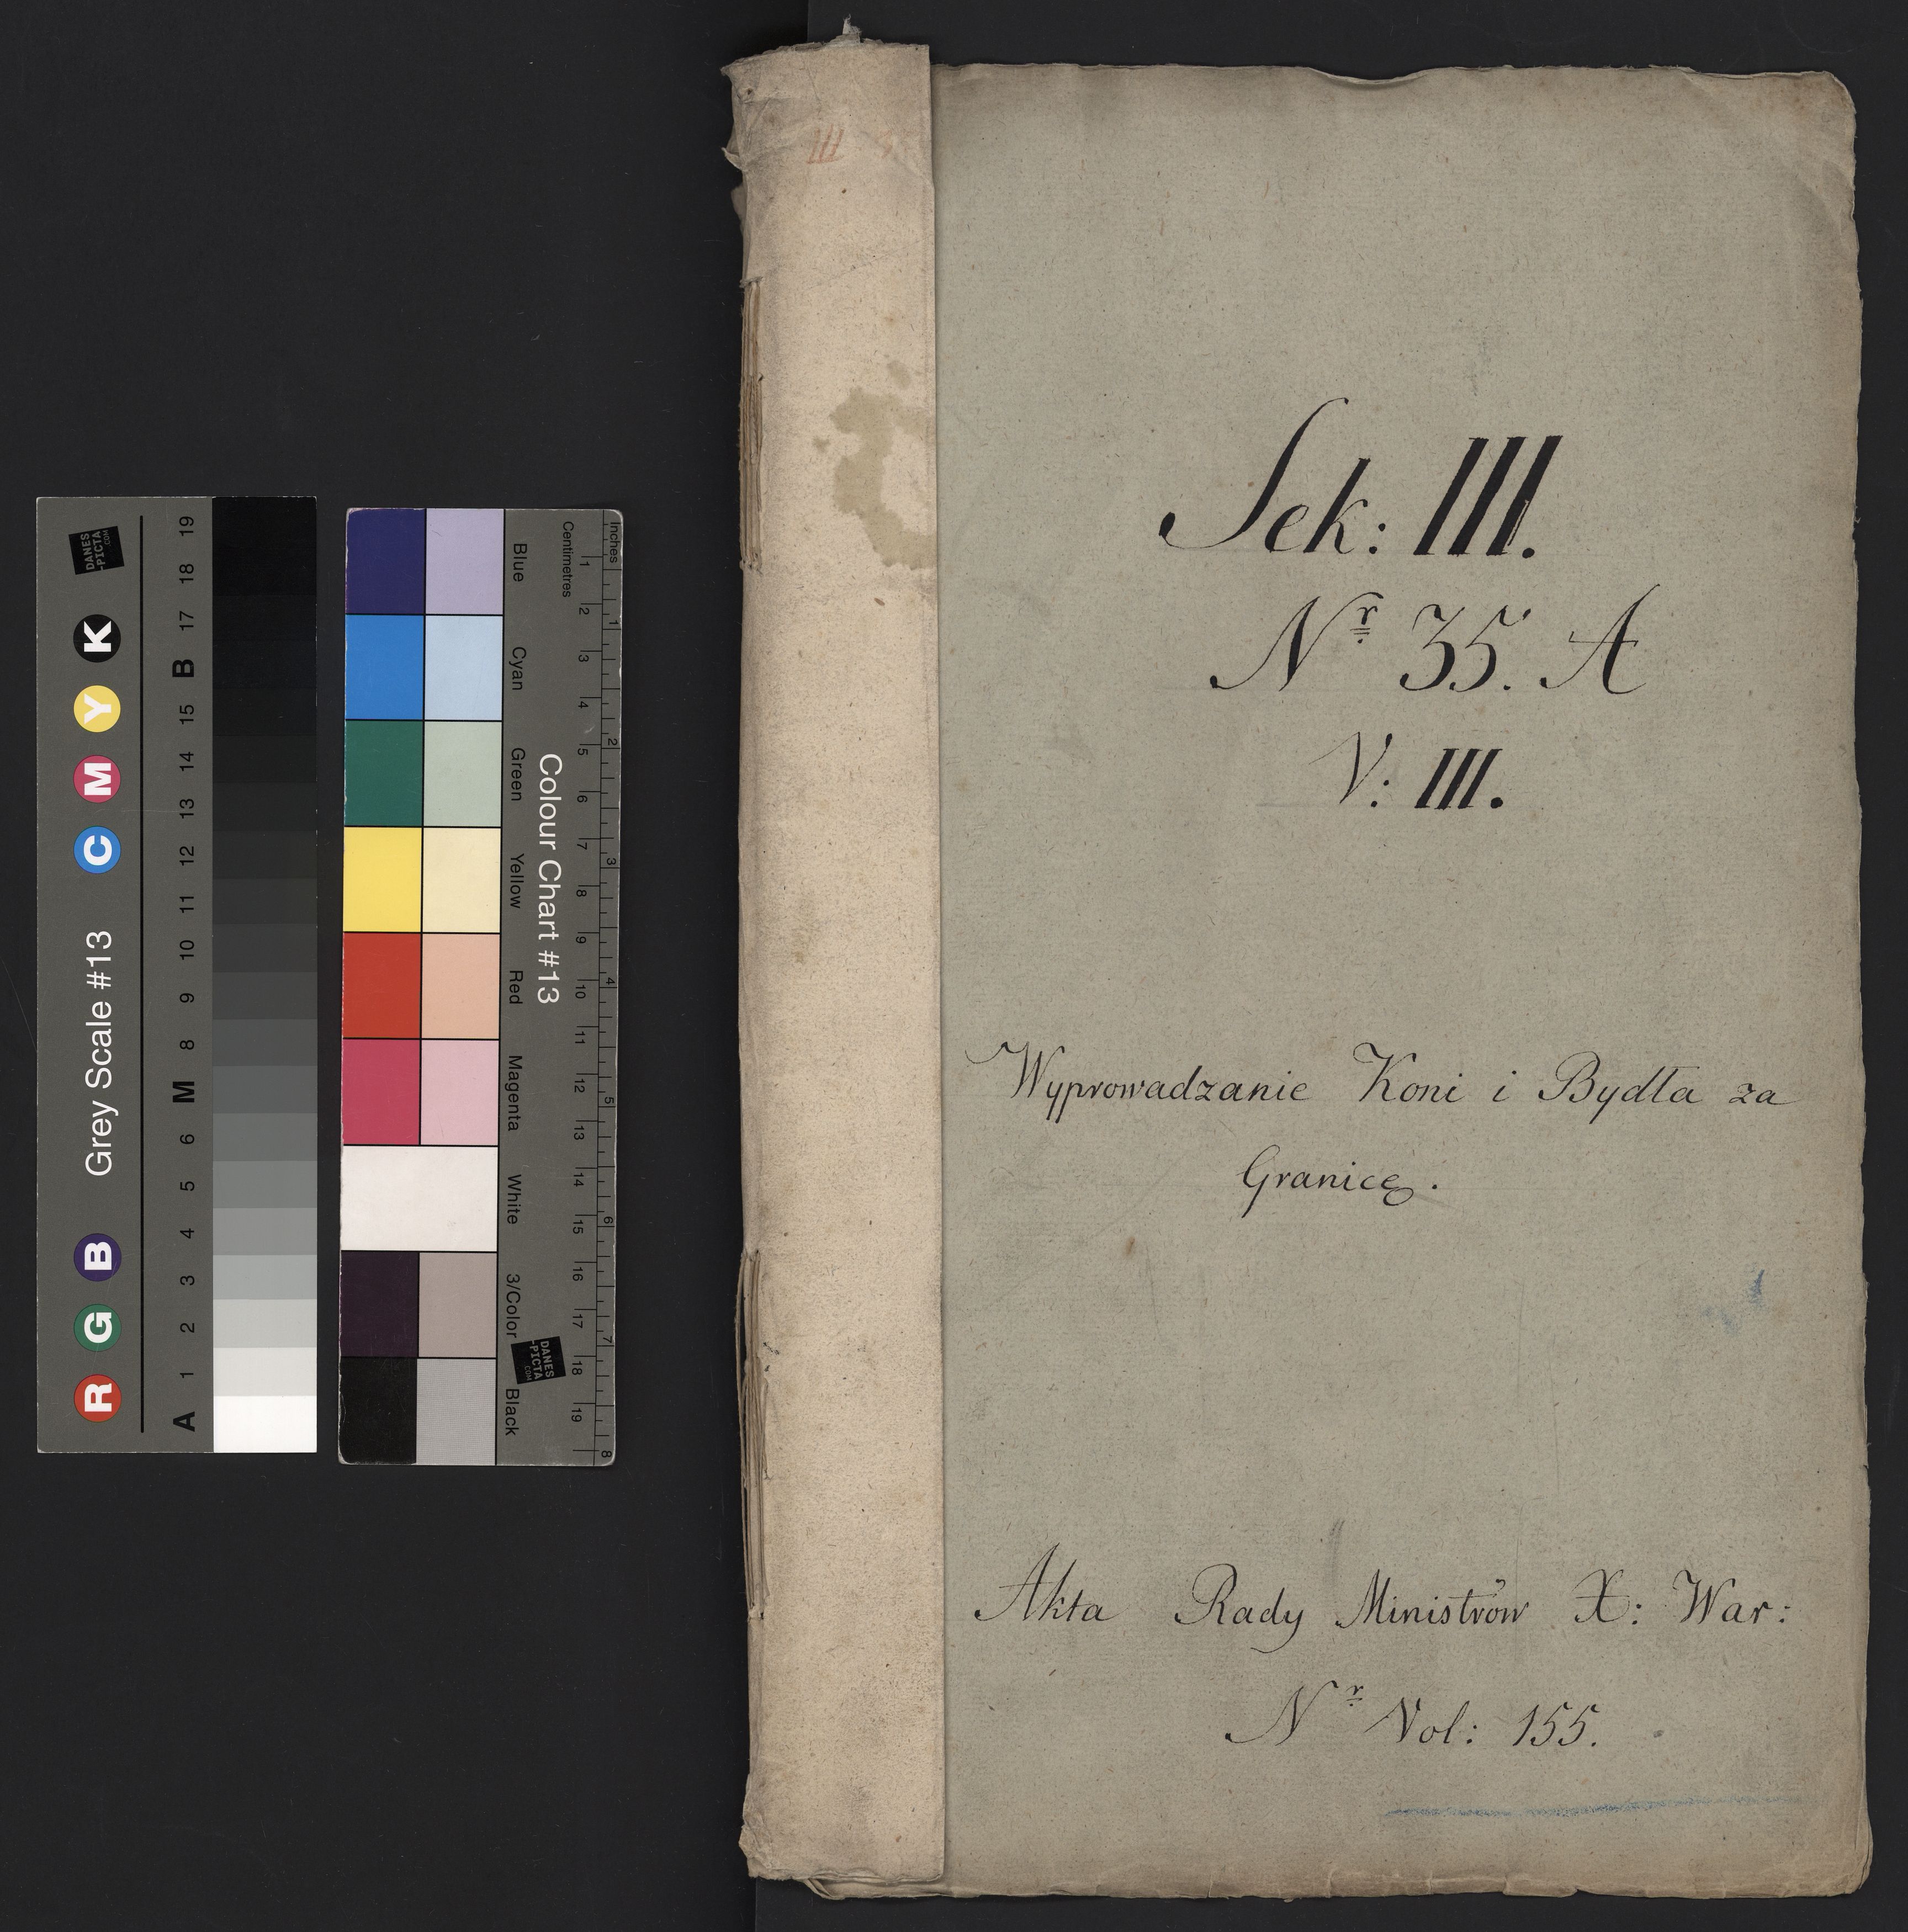 III
Sek: III.
Nr 35. A
V: III.
Wyprowadzanie Koni i Bydła za
Granicę.
Akta Rady Ministrów X: War:
Nr Vol: 155.
Grey Scale #13
R G B C M Y K
A 1 2 3 4 5 6 M 8 9 10 11 12 13 14 15 B 17 18 19
DANES
-PICTA
.COM
Colour Chart #13
Blue Cyan Green Yellow Red Magenta White 3/Color Black
Centimetres 1 2 3 4 5 6 7 8 9 10 11 12 13 14 15 16 17 18 19
Inches 1 2 3 4 5 6 7 8
DANES
-PICTA
.COM